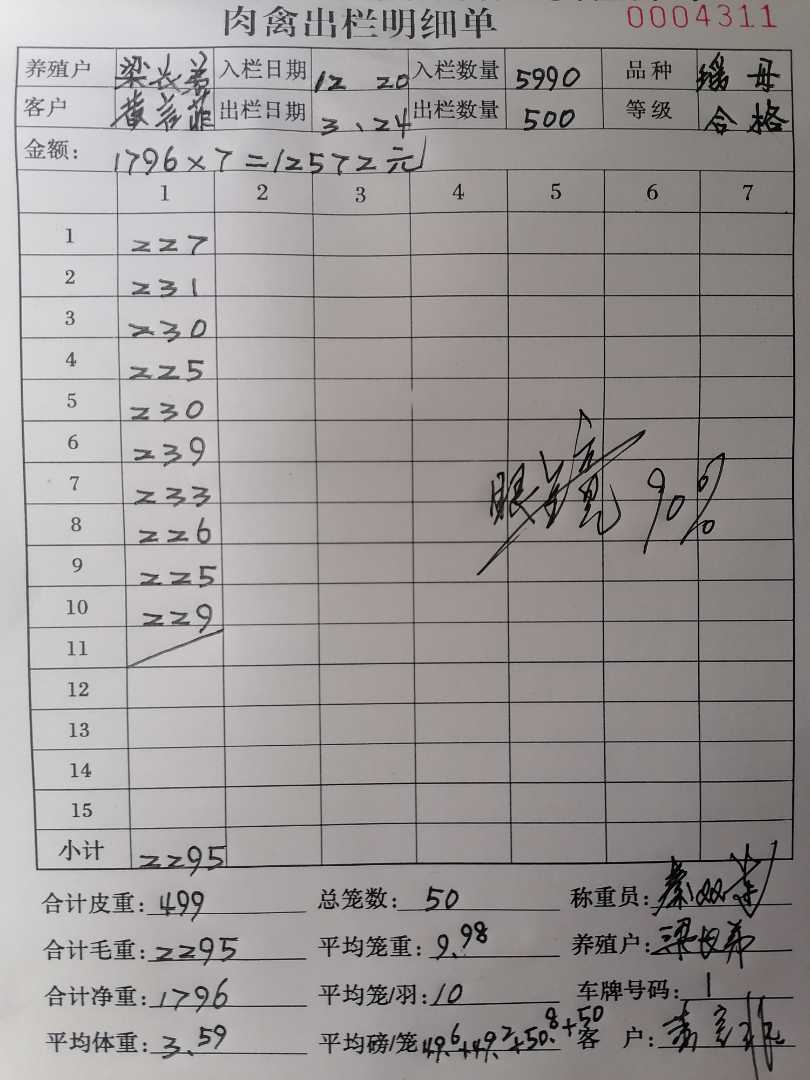 肉禽出栏明细单 0004311
养殖户 梁长弟 入栏日期 12 20 入栏数量 5990 品种 瑶母
客户 出栏日期 3.24 出栏数量 500 等级 合格
金额: 1796×7=12572元
1 2 3 4 5 6 7
1 227
2 231
3 230
4 225
5 230
6 239
7 233
8 226
9 225
10 229
11
12
13
14
15
90%
小计 2295
合计皮重: 499 总笼数: 50 称重员:
合计毛重: 2295 平均笼重: 9.98 养殖户: 梁长弟
合计净重: 1796 平均笼/羽: 10 车牌号码: 1
平均体重: 3.59 平均磅/笼 49.6+49.2+50.8+50 客户: